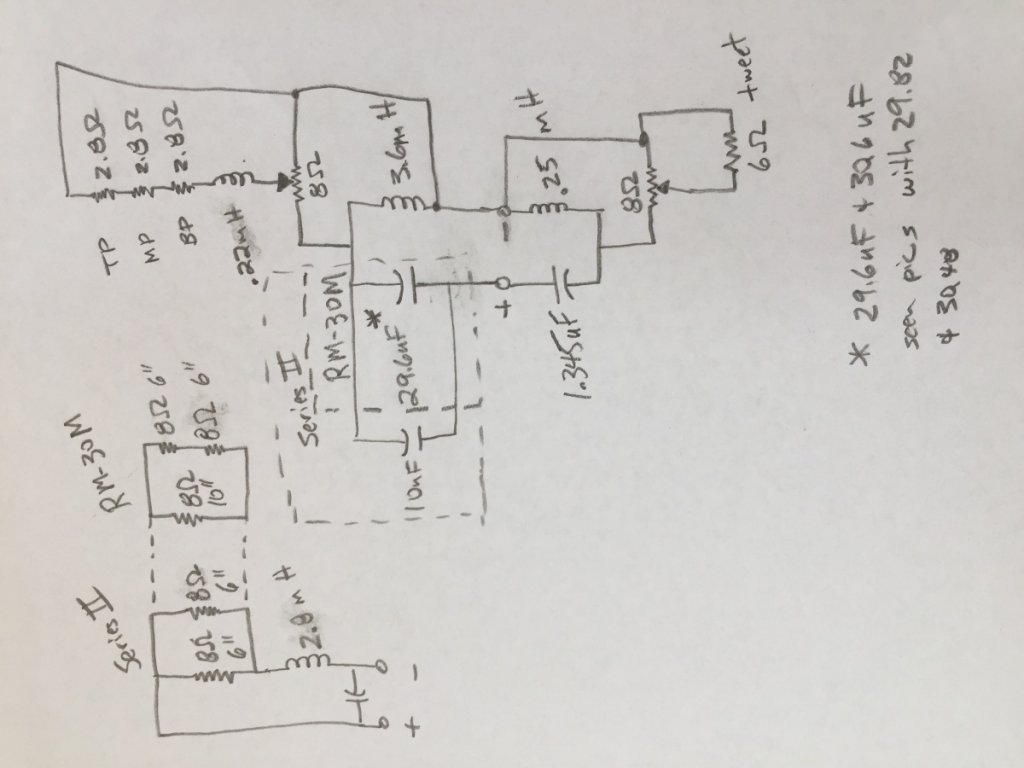 Series II
8Ω
6"
8Ω
6"
2.8 mH
+
-
RM-30M
8Ω
10"
8Ω 6"
8Ω 6"
TP 2.8Ω
MP 2.8Ω
BP 2.8Ω
.22mH
8Ω
Series II
RM-30M
*
110uF
29.6uF
3.6mH
+
-
1.345uF
.25 mH
8Ω
6Ω tweet
* 29.6uF + 326uF
seen pics with 29.82